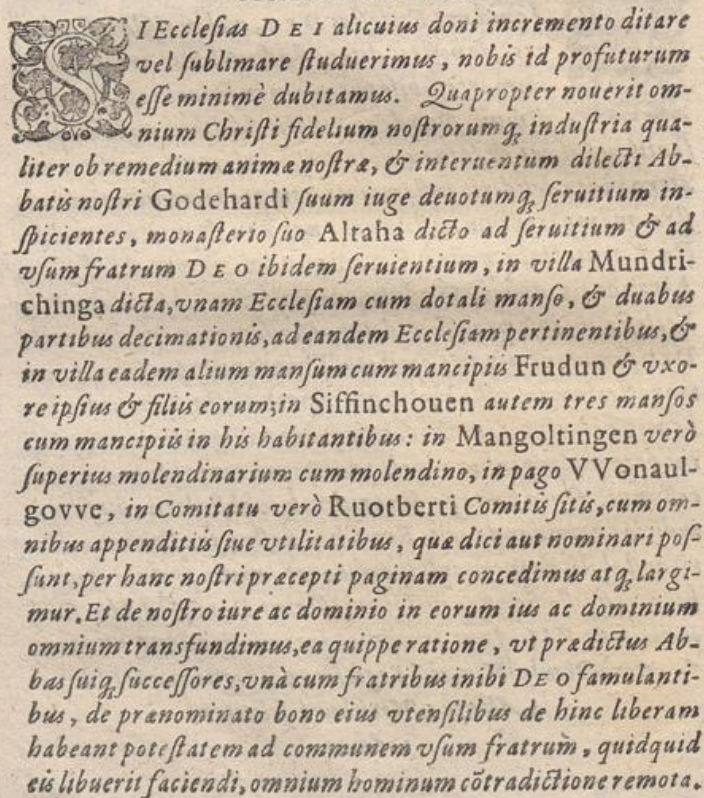 SI Ecclesias DEI alicuius doni incremento ditare
vel sublimare studuerimus, nobis id profuturum
esse minimè dubitamus. Quapropter nouerit om-
nium Christi fidelium nostrorumq; industria qua-
liter ob remedium animæ nostræ, & interuentum dilecti Ab-
batis nostri Godehardi suum iuge deuotumq; seruitium in-
spicientes, monasterio suo Altaha dicto ad seruitium & ad
vsum fratrum DEO ibidem seruientium, in villa Mundri-
chinga dicta, vnam Ecclesiam cum dotali manso, & duabus
partibus decimationis, ad eandem Ecclesiam pertinentibus, &
in villa eadem alium mansum cum mancipiis Frudun & vxo-
re ipsius & filiis eorum; in Siffinchouen autem tres mansos
cum mancipiis in his habitantibus: in Mangoltingen verò
superius molendinarium cum molendino, in pago VVonaul-
govve, in Comitatu verò Ruotberti Comitis sitis, cum om-
nibus appenditiis siue vtilitatibus, quæ dici aut nominari pos-
sunt, per hanc nostri præcepti paginam concedimus atq; largi-
mur. Et de nostro iure ac dominio in eorum ius ac dominium
omnium transfundimus, ea quippe ratione, vt prædictus Ab-
bas suiq; successores, vnà cum fratribus inibi DEO famulanti-
bus, de prænominato bono eius vtensilibus de hinc liberam
habeant potestatem ad communem vsum fratrum, quidquid
eis libuerit faciendi, omnium hominum cõtradictione remota.